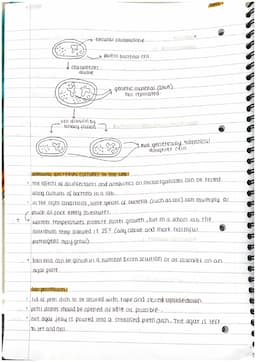 bacterial chromosome
parent bacterial cell
chromosomes
divide
genetic material (DNA)
has replicated
cell divides by
binary fission
two genetically identical
daughter cells
GROWING BACTERIAL CULTURES IN THE LAB:
• the effects of disinfectants and antibiotics on microorganisms can be tested
using cultures of bacteria in a lab.
• in the right conditions, some species of bacteria (such as can multiply as
much as once every 20 minutes.
• warmer temperatures promote faster growth, but in a school lab, the
maximum temp allowed is 25° (any above and more harmful
pathogens may grow)
• bacteria can be grown in a nutrient broth solution or as colonies on an
agar plate.
• lid of petri dish to be secured with tape and stored upside down.
• petri dishes should be opened as little as possible.
• hot agar jelly is poured into a sterilised petri dish. The agar is left
to set and cool.